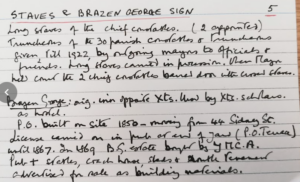 STAVES & BRAZEN GEORGE SIGN 5
Long staves of the chief constables. (2 opposites)
Truncheons of the 30 parish constables & Truncheons
given till 1922 by outgoing mayors to officials &
friends. Long staves carried in procession. When Mayor
held court the 2 chief constables barred door with crossed staves.
Brazen George: orig. inn opposite Xts. Used by Xts. scholars
as hostel.
P.O. built on site 1850 - moving from 44 Sidney St.
license carried on in pub at end of yard (P.O. Terrace)
until 1867. In 1869 B.G. estate bought by M.C.A.
Pub + stables, coach house, sheds &
advertised for sale as building materials.